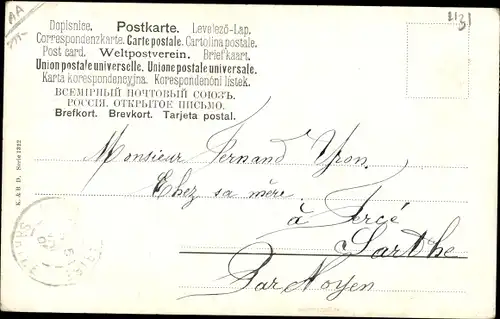 AA
Dopisnice. Postkarte. Levelező-Lap.
Correspondenzkarte. Carte postale. Cartolina postale.
Post card. Weltpostverein. Briefkaart.
Union postale universelle. Unione postale universale.
Karta korespondencyjna. Korespondenóni lístek.
ВСЕМІРНЫЙ ПОЧТОВЫЙ СОЮЗЪ.
РОССІЯ. ОТКРЫТОЕ ПИСЬМО.
Brefkort. Brevkort. Tarjeta postal.
Monsieur Fernand Yvon
Chez sa mère
à Tercé
Sarthe
Par Noyen
K. & B. D. Serie 1322